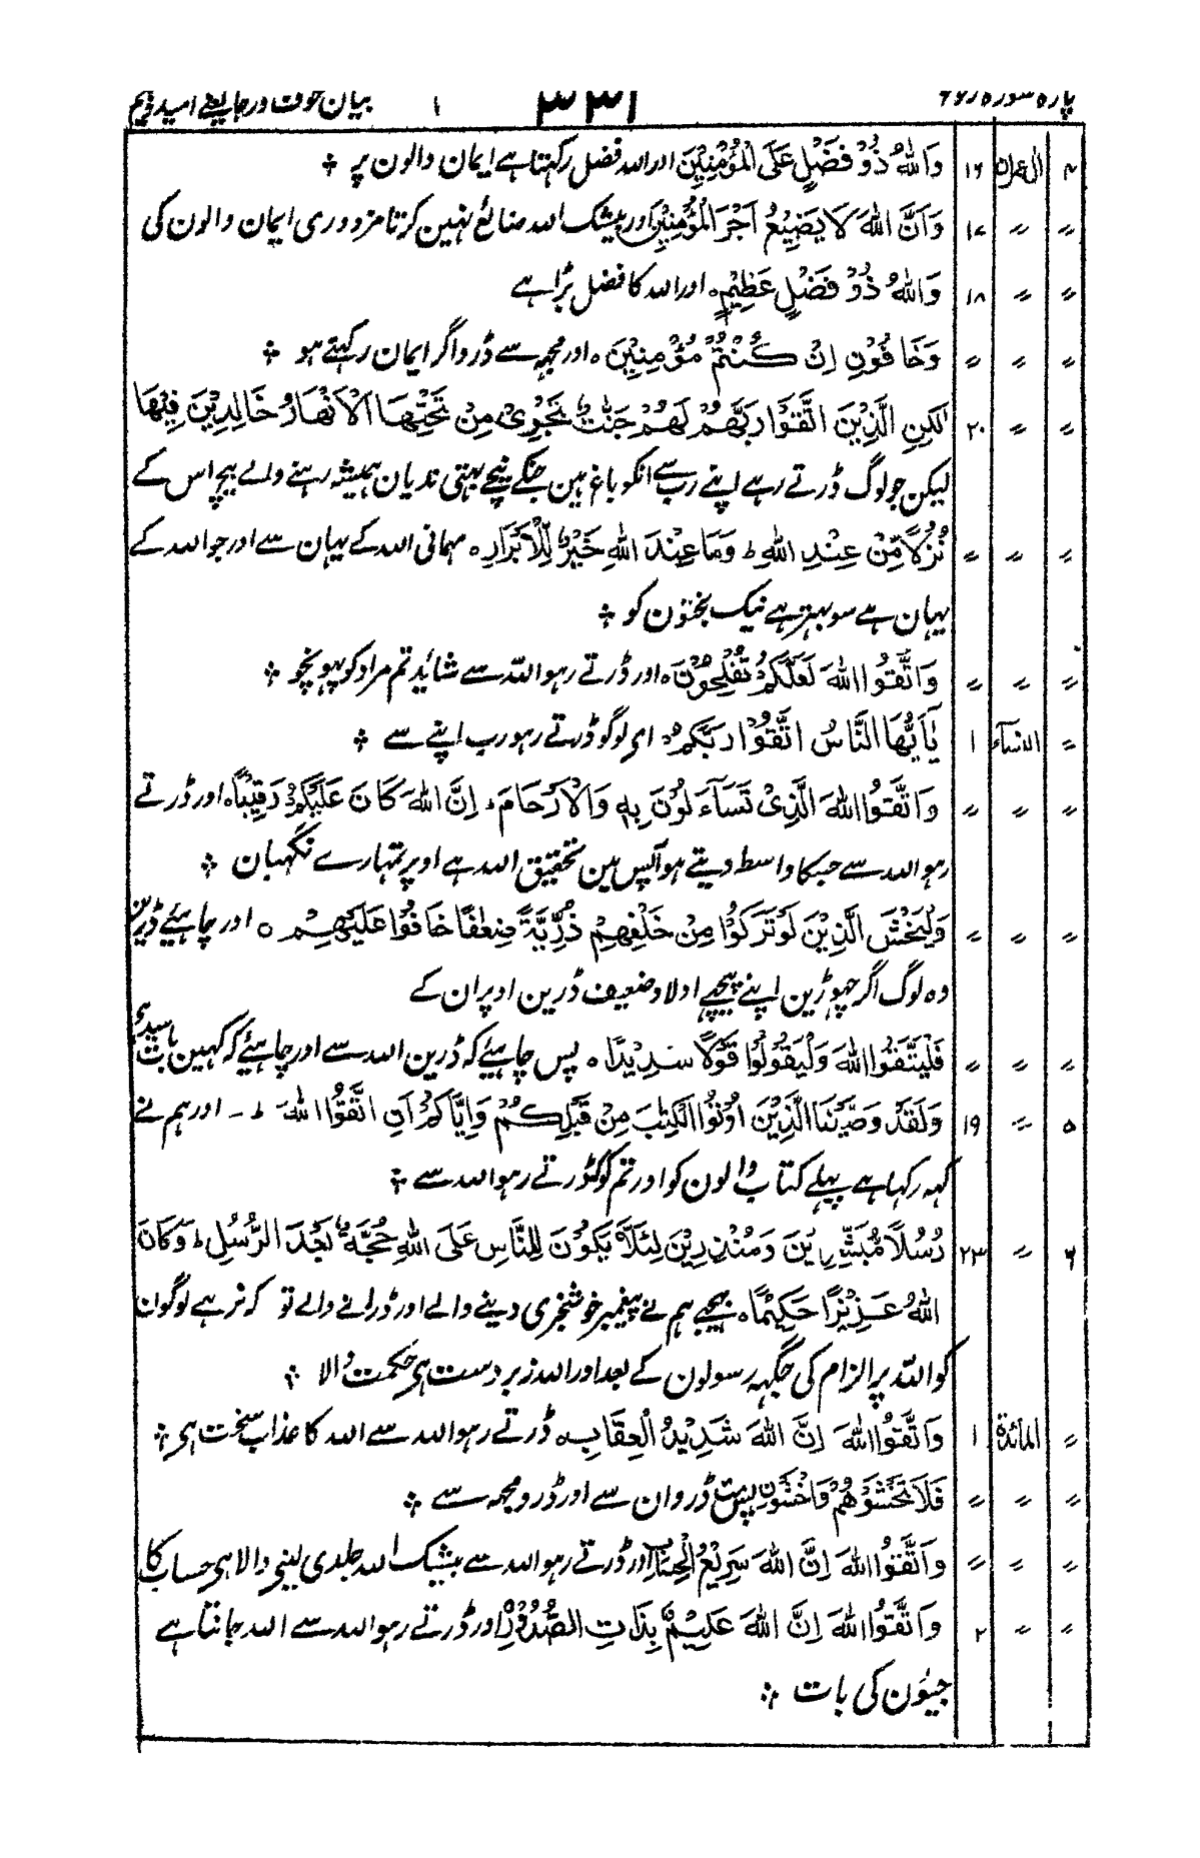 پاره سوره ر۶۲ ۳۳۱ ۱ بیان خوف ورجا یعنے امید وبیم
۴ اٰل عمران ۱۶ وَاللّٰهُ ذُوْ فَضْلٍ عَلَی الْمُؤْمِنِیْنَ اور اللہ فضل رکہتا ہے ایمان والون پر ؞
〃 〃 ۱۷ وَاَنَّ اللّٰهَ لَا یُضِیْعُ اَجْرَ الْمُؤْمِنِیْنَ اور بیشک اللہ ضائع نہین کرتا مزدوری ایمان والون کی
〃 〃 ۱۸ وَاللّٰهُ ذُوْ فَضْلٍ عَظِیْمٍ۝ اور اللہ کا فضل بڑا ہے
〃 〃 〃 وَخَافُوْنِ اِنْ كُنْتُمْ مُؤْمِنِیْنَ ۝ اور مجہہ سے ڈرو اگر ایمان رکہتے ہو ؞
〃 〃 ۲۰ لٰكِنِ الَّذِیْنَ اتَّقَوْا رَبَّهُمْ لَهُمْ جَنّٰتٌ تَجْرِیْ مِنْ تَحْتِهَا الْاَنْهَارُ خَالِدِیْنَ فِیْهَا
لیکن جو لوگ ڈرتے رہے اپنے رب سے انکو باغ ہین جنکے نیچے بہتی ندیان ہمیشہ رہنے والے بیچ اس کے
〃 〃 〃 نُزُلًا مِّنْ عِنْدِ اللّٰهِ ط وَمَا عِنْدَ اللّٰهِ خَیْرٌ لِّلْاَبْرَارِ ۝ مہمانی اللہ کے یہان سے اور جو اللہ کے
یہان ہے سو بہتر ہے نیک بختون کو ؞
〃 〃 〃 وَاتَّقُوا اللّٰهَ لَعَلَّكُمْ تُفْلِحُوْنَ ۝ اور ڈرتے رہو اللہ سے شائد تم مراد کو پہونچو ؞
〃 النساء ۱ یٰۤاَیُّهَا النَّاسُ اتَّقُوْا رَبَّكُمُ۝ ای لوگو ڈرتے رہو رب اپنے سے ؞
〃 〃 〃 وَاتَّقُوا اللّٰهَ الَّذِیْ تَسَآءَلُوْنَ بِهٖ وَالْاَرْحَامَ ۔ اِنَّ اللّٰهَ كَانَ عَلَیْكُمْ رَقِیْبًا۝ اور ڈرتے
رہو اللہ سے جسکا واسط دیتے ہو آپس مین تحقیق اللہ ہے اوپر تمہارے نگہبان ؞
〃 〃 〃 وَلْیَخْشَ الَّذِیْنَ لَوْ تَرَكُوْا مِنْ خَلْفِهِمْ ذُرِّیَّةً ضِعٰفًا خَافُوْا عَلَیْهِمْ ۝ اور چاہئے ڈرین
وہ لوگ اگر چہوڑین اپنے پیچہے اولاد ضعیف ڈرین اوپر ان کے
〃 〃 〃 فَلْیَتَّقُوا اللّٰهَ وَلْیَقُوْلُوْا قَوْلًا سَدِیْدًا ۝ پس چاہئے کہ ڈرین اللہ سے اور چاہئے کہ کہین بات سیدہی
۵ 〃 ۱۹ وَلَقَدْ وَصَّیْنَا الَّذِیْنَ اُوْتُوا الْكِتٰبَ مِنْ قَبْلِكُمْ وَاِیَّاكُمْ اَنِ اتَّقُوا اللّٰهَ ط ۔ اور ہم نے
کہہ رکہا ہے پہلے کتاب والون کو اور تم کو کہ ڈرتے رہو اللہ سے ؞
۶ 〃 ۲۳ رُسُلًا مُّبَشِّرِیْنَ وَمُنْذِرِیْنَ لِئَلَّا یَكُوْنَ لِلنَّاسِ عَلَی اللّٰهِ حُجَّةٌۢ بَعْدَ الرُّسُلِ ط وَكَانَ
اللّٰهُ عَزِیْزًا حَكِیْمًا۝ بھیجے ہم نے پیغمبر خوشخبری دینے والے اور ڈرانے والے تو کہ نر ہے لوگون
کو اللہ پر الزام کی جگہہ رسولون کے بعد اور اللہ زبردست ہی حکمت والا ؞
〃 المائدۃ ۱ وَاتَّقُوا اللّٰهَ اِنَّ اللّٰهَ شَدِیْدُ الْعِقَابِ۝ ڈرتے رہو اللہ سے اللہ کا عذاب سخت ہی ؞
〃 〃 〃 فَلَا تَخْشَوْهُمْ وَاخْشَوْنِ پس مت ڈرو ان سے اور ڈرو مجہہ سے ؞
〃 〃 〃 وَاتَّقُوا اللّٰهَ اِنَّ اللّٰهَ سَرِیْعُ الْحِسَابِ اور ڈرتے رہو اللہ سے بیشک اللہ جلدی لینی والا ہی حساب کا
〃 〃 ۲ وَاتَّقُوا اللّٰهَ اِنَّ اللّٰهَ عَلِیْمٌ بِذَاتِ الصُّدُوْرِ اور ڈرتے رہو اللہ سے اللہ جانتا ہے
جیؤن کی بات ؞